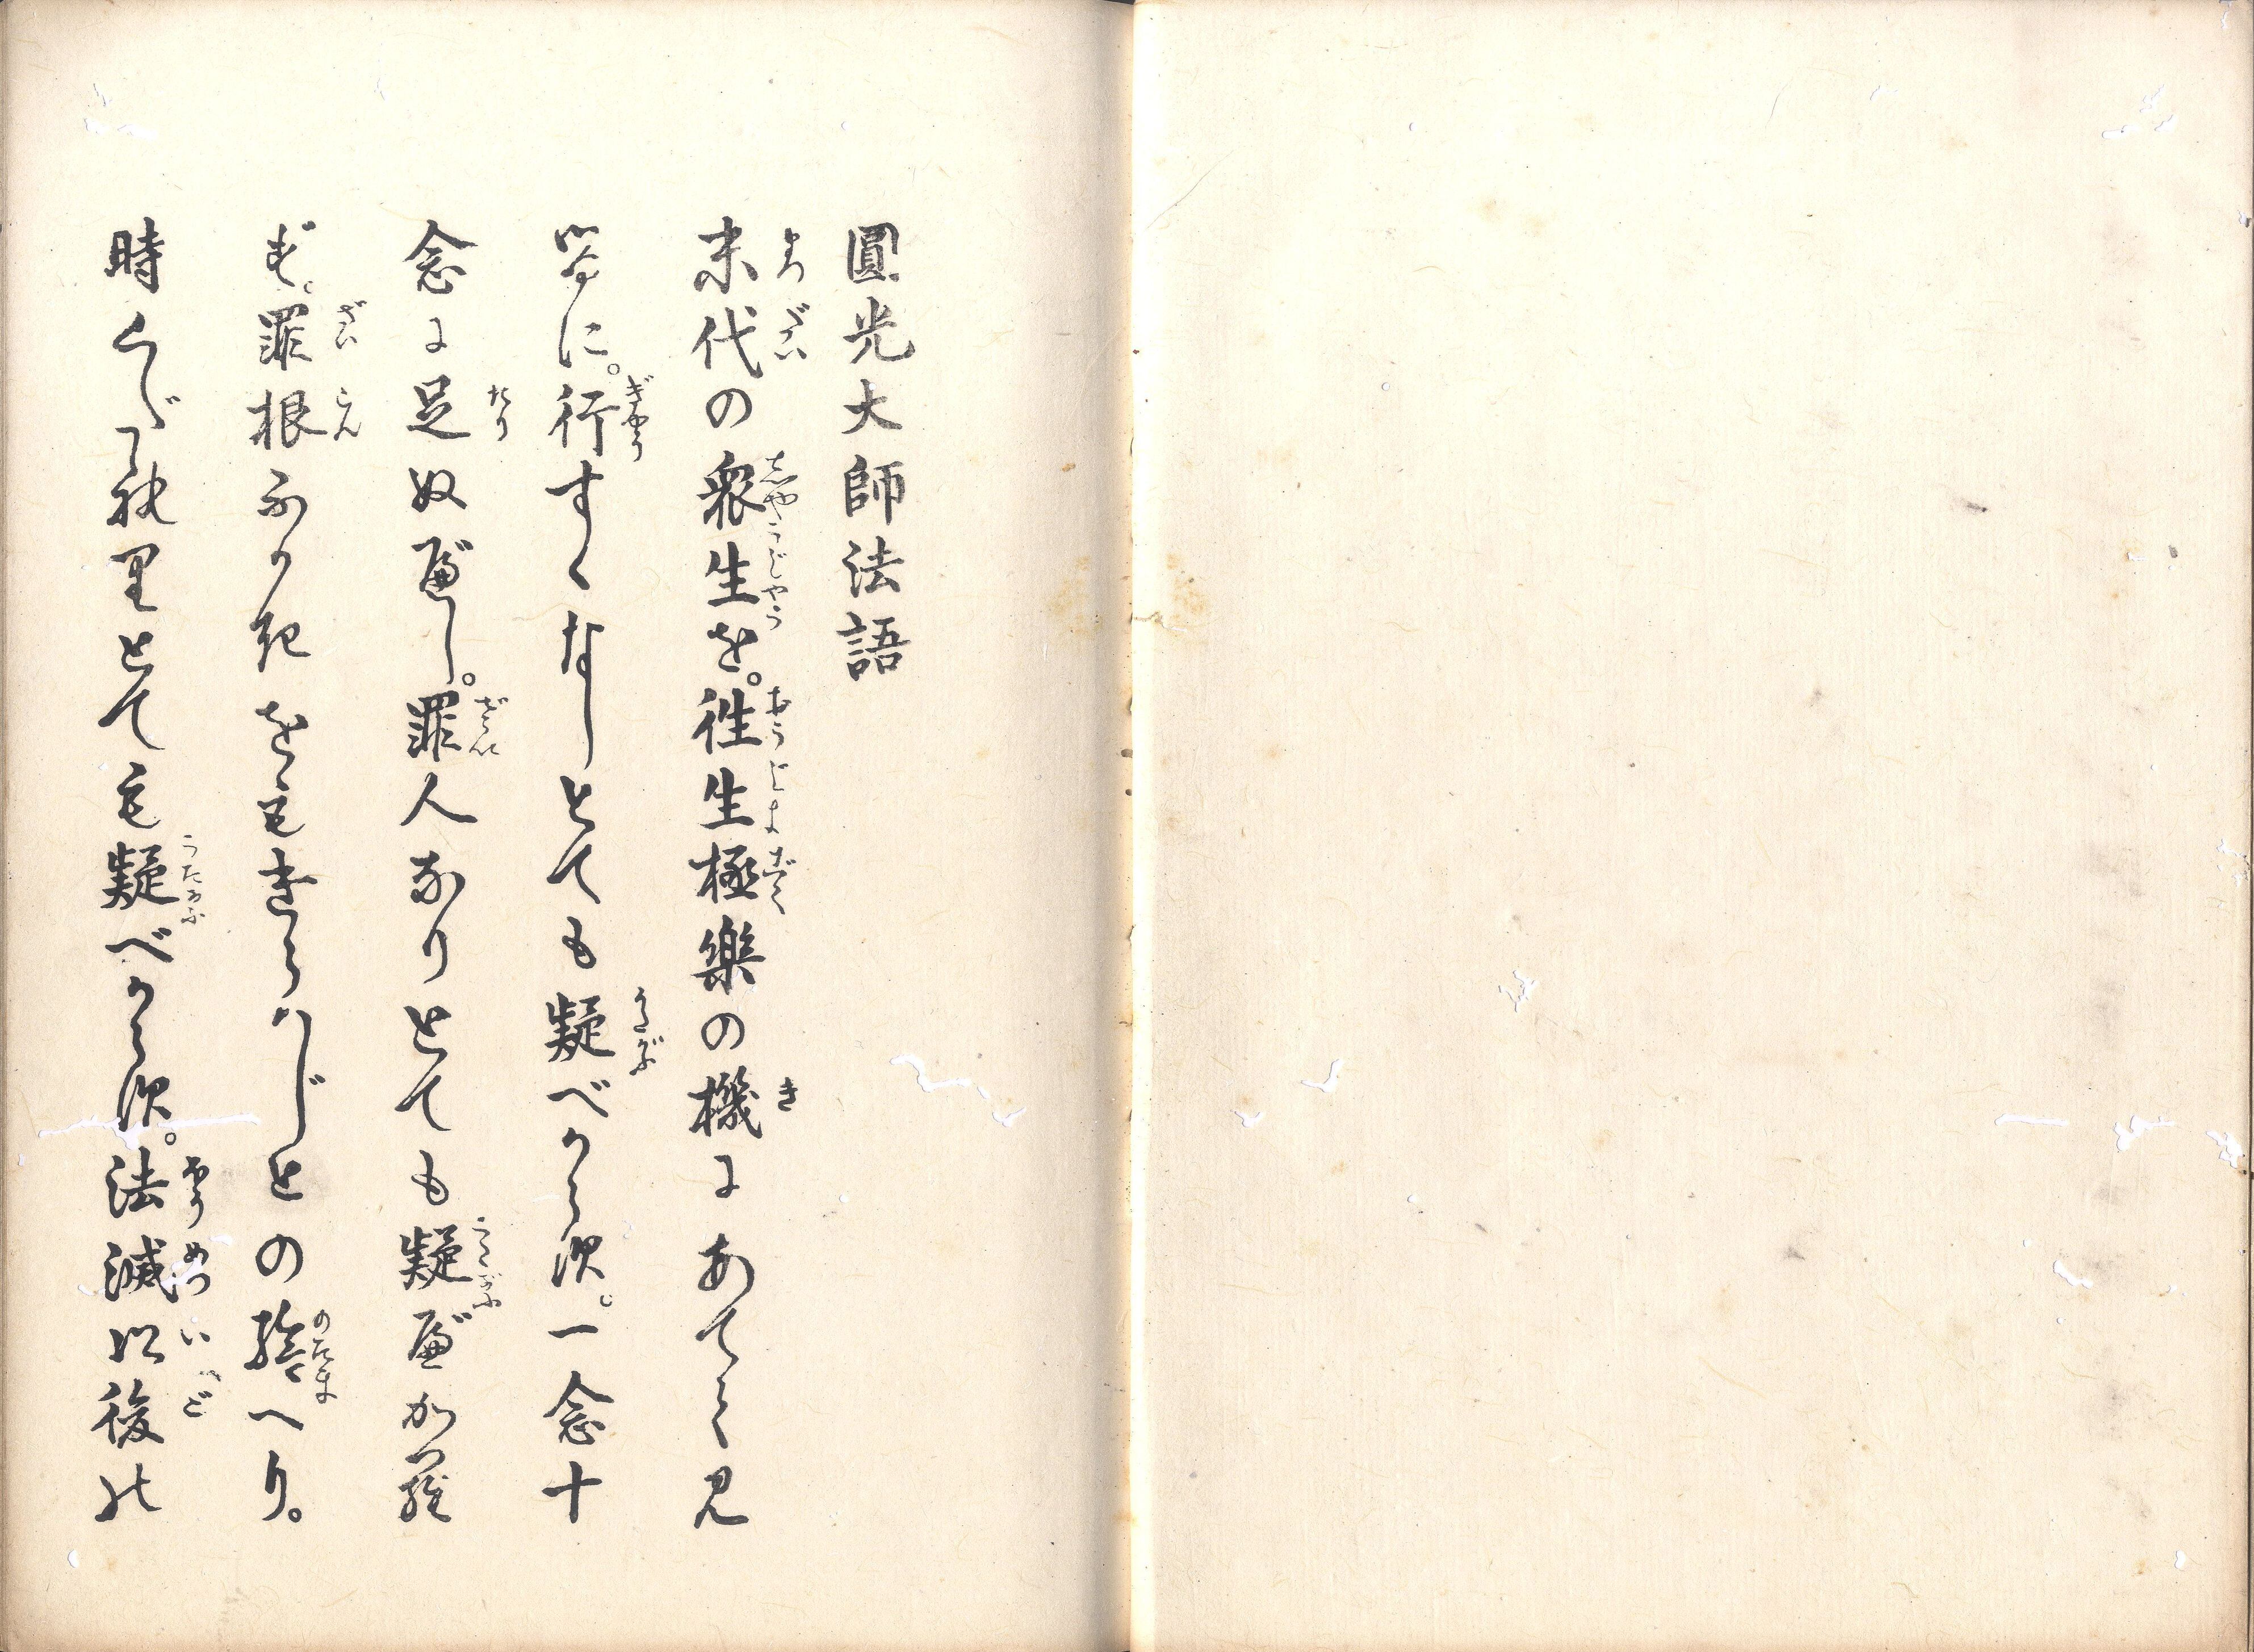 圓光大師法語
末代の衆生を。徃生極樂の機にあてゝ見
るに。行すくなしとても疑べからず。一念十
念に足ぬべし。罪人なりとても疑べから
ず。罪根ふかきをもきらはじとの給へり。
時くだれりとても疑べからず。法滅以後の